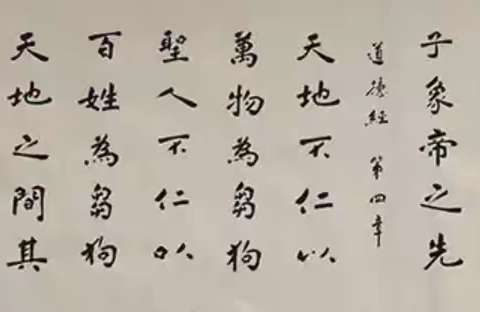 子象帝之先
道德經 第四章
天地不仁以
萬物為芻狗
聖人不仁以
百姓為芻狗
天地之間其